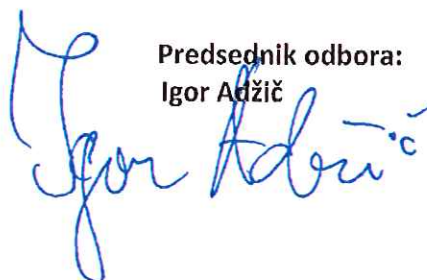 Predsednik odbora:
Igor Adžič
Igor Adžič